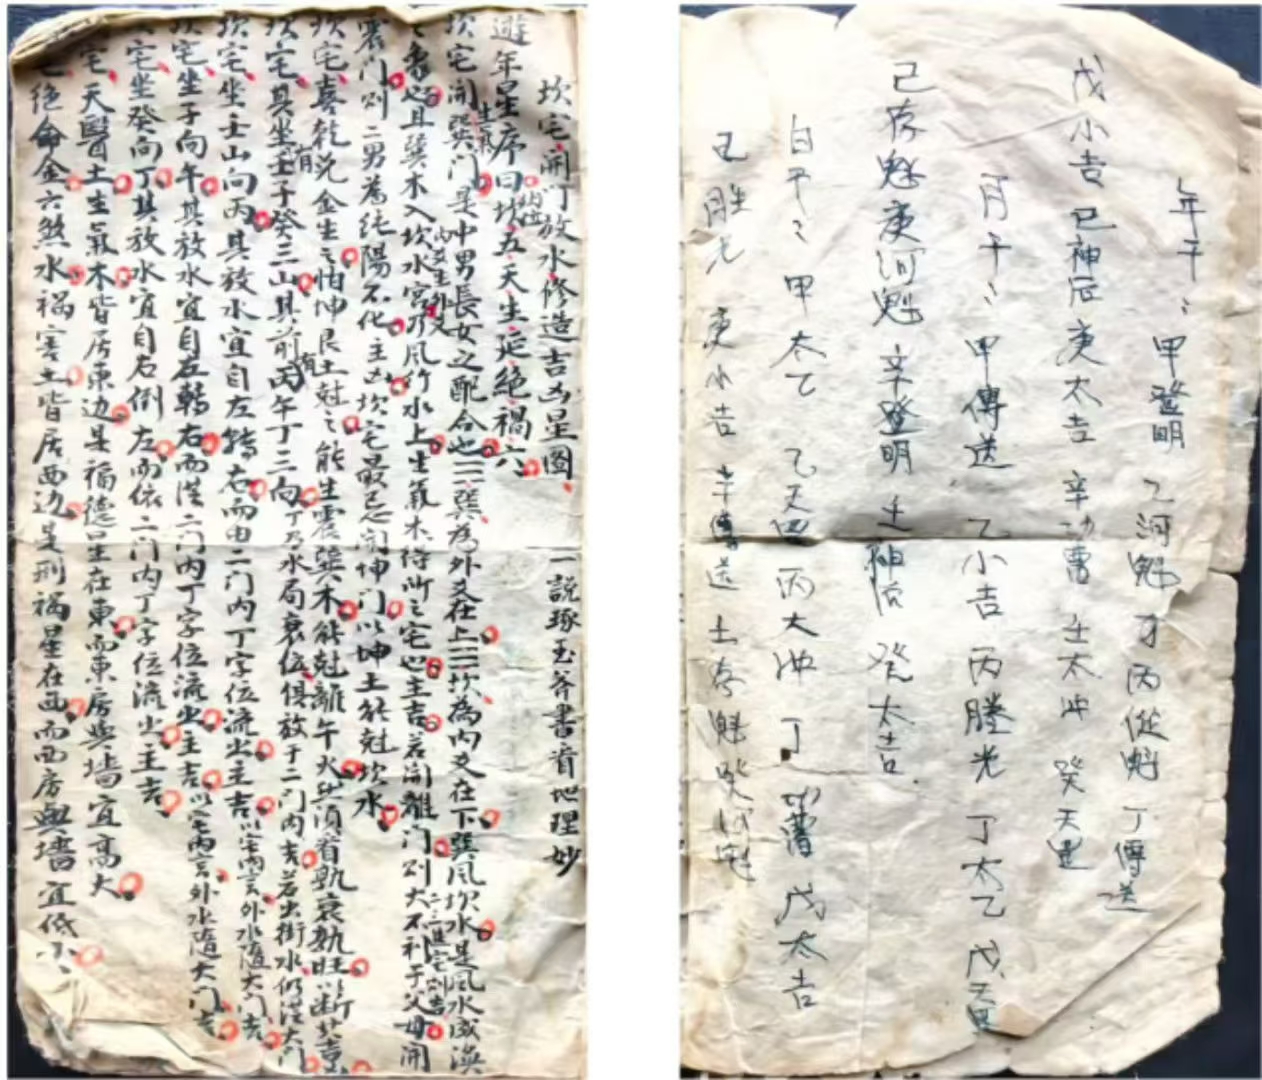 坎宅開門放水修造吉凶星圖 一說琢玉斧書看地理妙
遊年星序曰坎五天生延絕禍六
坎宅開巽門是中男長女之配合也☴巽為外爻在上☵坎為內爻在下巽風坎水是風水成渙
者也且巽木入坎水宮乃風行水上生氣木得所之宅也主吉若開離門则大不利于父母開
震門则二男為純陽不化主凶坎宅最忌開坤門以坤土能尅坎水
坎宅喜乾兌金生之怕坤艮土尅之能生震巽木能尅離午火然須看孰衰孰旺以斷
坎宅其坐壬子癸三山其前有丙午丁三向丁乃水局衰位俱放于二门内吉若出街水仍從大门
坎宅坐壬山向丙其放水宜自左轉右而由二门内丁字位流出主吉以宅内言外水隨大门吉
坎宅坐子向午其放水宜自左轉右而從二门内丁字位流出主吉以宅内言外水隨大门吉
宅坐癸向丁其放水宜自右倒左而依二门内丁字位流出主吉
宅天醫土生氣木皆居東边是福德星在東而東房與墙宜高大
絕命金六煞水禍害土皆居西边是刑禍星在西而西房與墻宜低小
年干〻甲登明 乙河魁 丙從魁 丁傳送
戊小吉 己神后 庚太吉 辛功曹 壬太冲 癸天罡
月干〻甲傳送 乙小吉 丙勝光 丁太乙 戊天罡
己從魁 庚河魁 辛登明 壬神后 癸太吉
日干〻甲太乙 乙天罡 丙大冲 丁功曹 戊太吉
己勝光 庚小吉 辛傳送 壬從魁 癸河魁